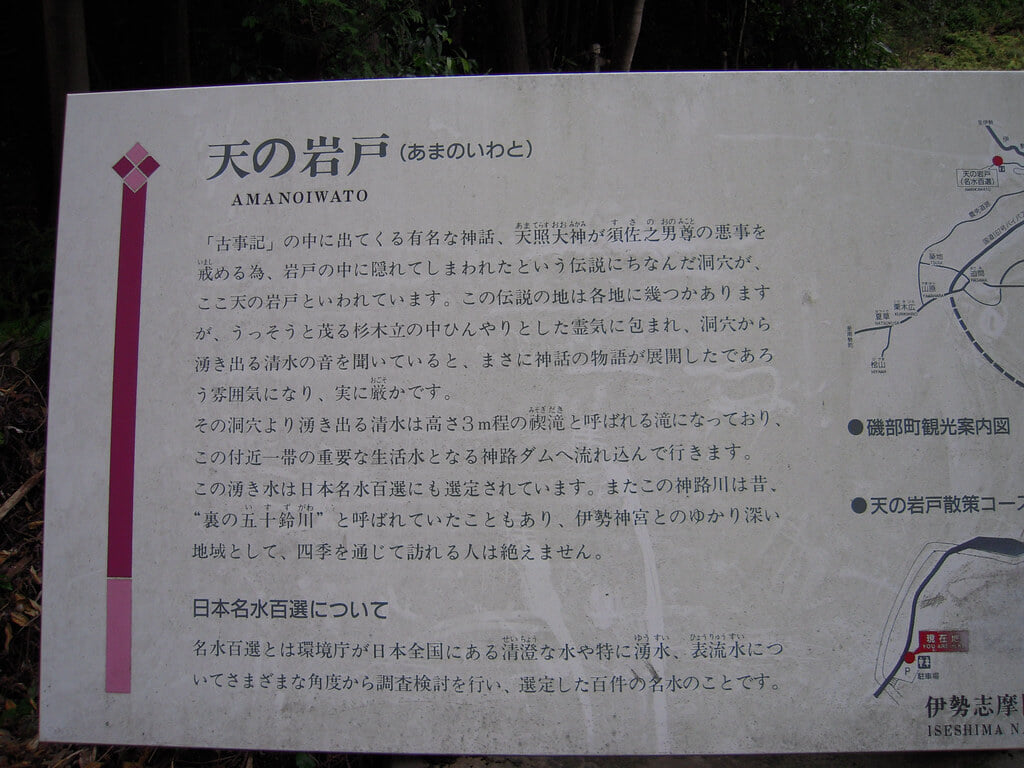 天の岩戸(あまのいわと)
AMANOIWATO
「古事記」の中に出てくる有名な神話、天照大神が須佐之男尊の悪事を
戒める為、岩戸の中に隠れてしまわれたという伝説にちなんだ洞穴が、
ここ天の岩戸といわれています。この伝説の地は各地に幾つかあります
が、うっそうと茂る杉木立の中ひんやりとした霊気に包まれ、洞穴から
湧き出る清水の音を聞いていると、まさに神話の物語が展開したであろ
う雰囲気になり、実に厳かです。
その洞穴より湧き出る清水は高さ3m程の禊滝と呼ばれる滝になっており、
この付近一帯の重要な生活水となる神路ダムへ流れ込んで行きます。
この湧き水は日本名水百選にも選定されています。またこの神路川は昔、
“裏の五十鈴川”と呼ばれていたこともあり、伊勢神宮とのゆかり深い
地域として、四季を通じて訪れる人は絶えません。
日本名水百選について
名水百選とは環境庁が日本全国にある清澄な水や特に湧水、表流水につ
いてさまざまな角度から調査検討を行い、選定した百件の名水のことです。
至伊勢
天の岩戸
(名水百選)
築地
山原
恵利原
夏草
桧山
●磯部町観光案内図
●天の岩戸散策コース
現在地
YOU ARE HERE
P
駐車場
伊勢志摩
ISESHIMA N